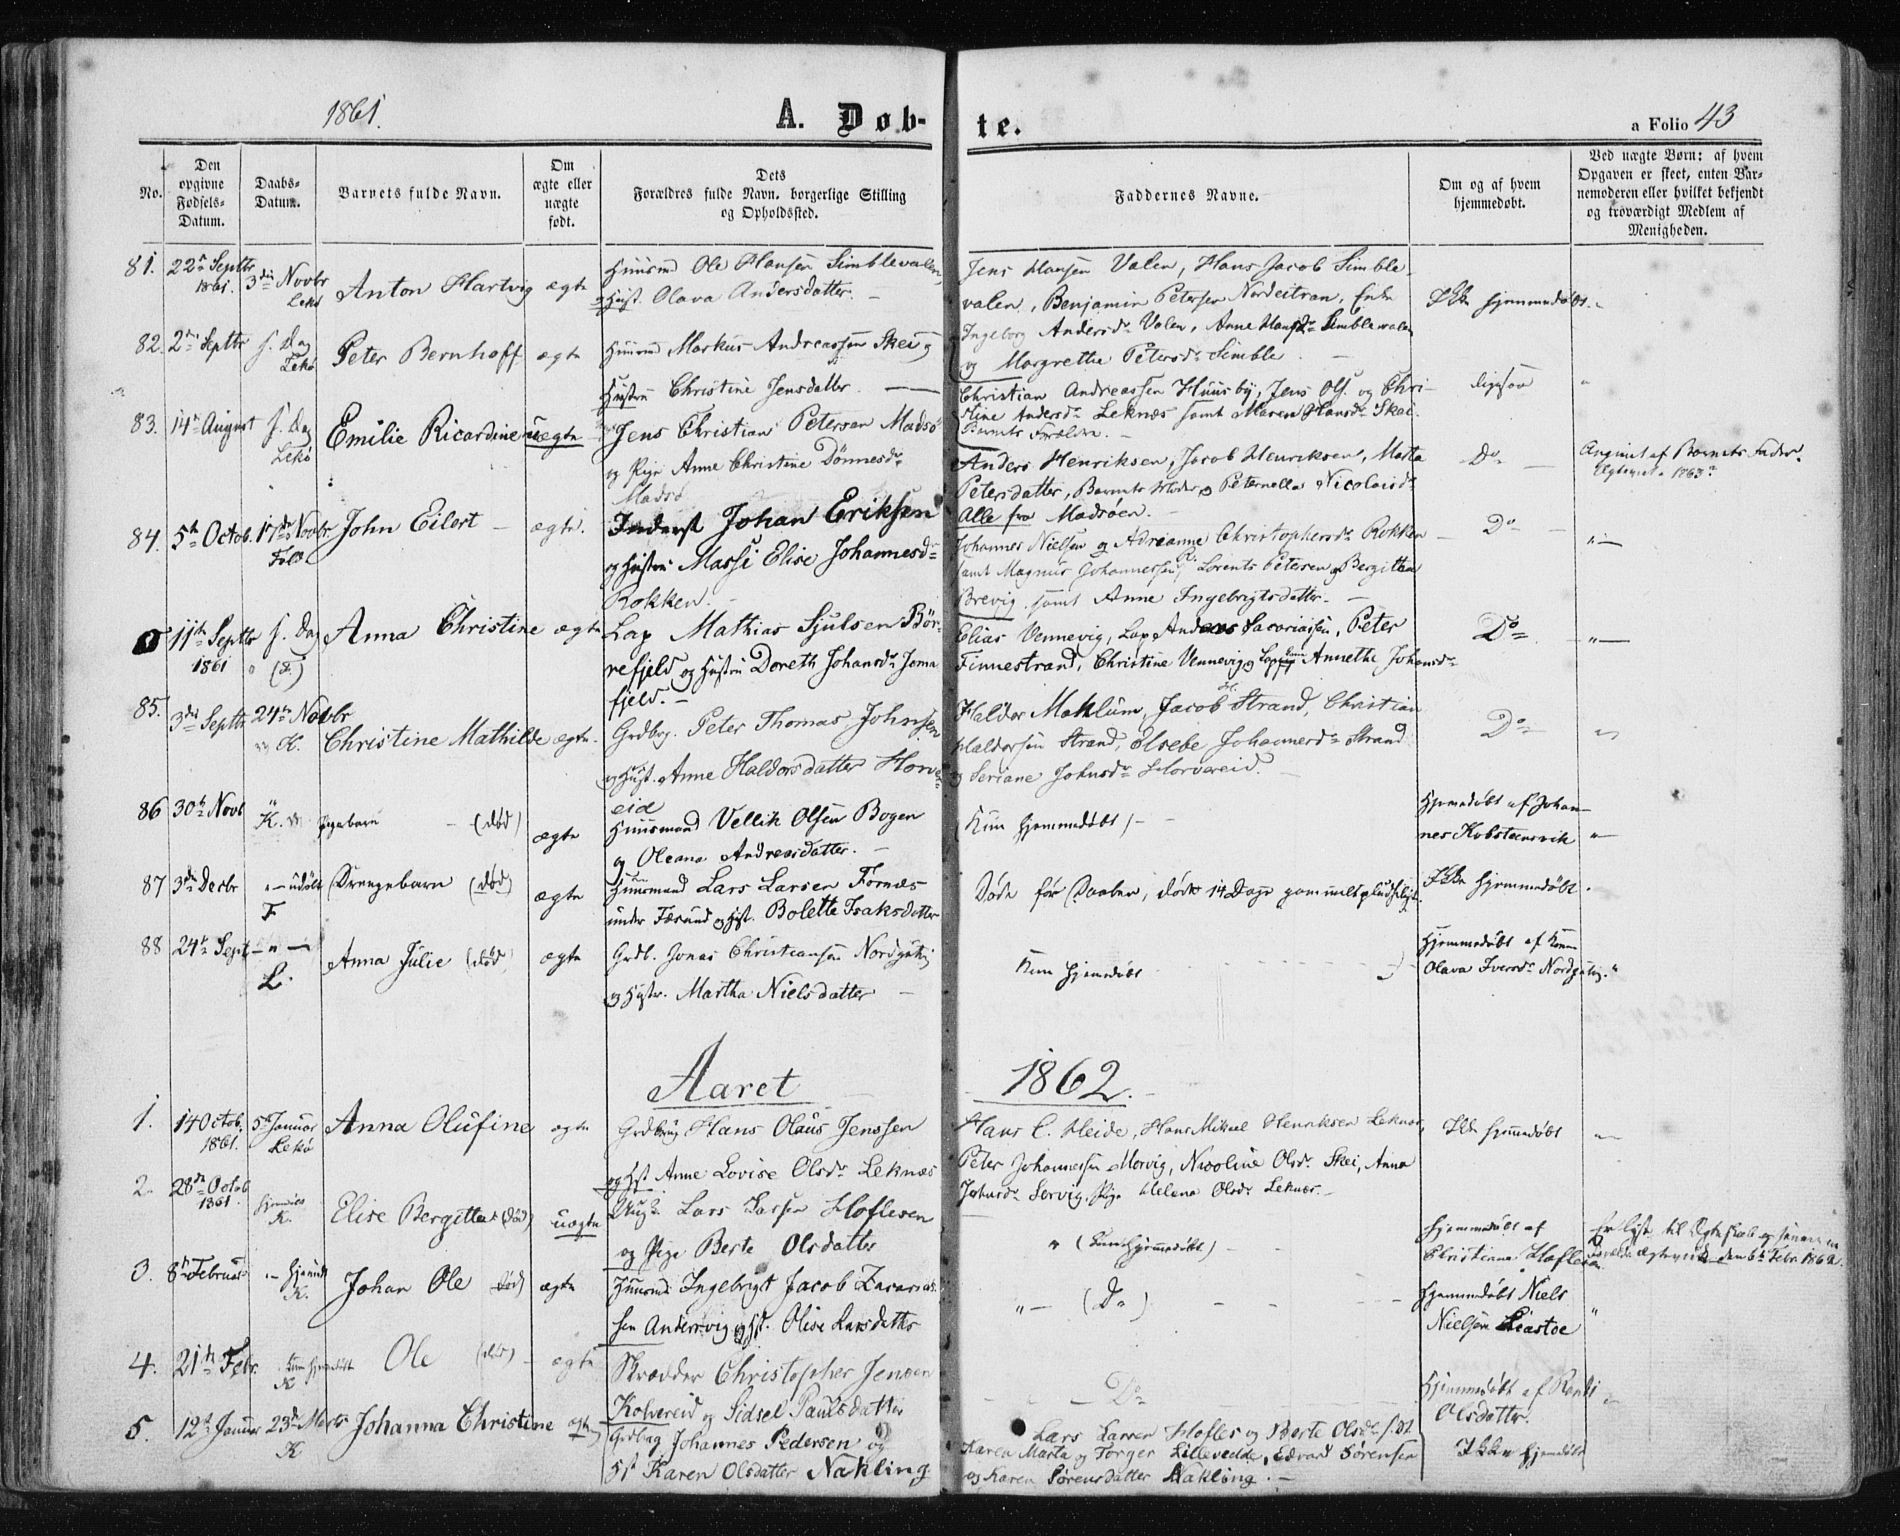 1861.
A. Døb-
te.
a Folio 43
No.
Den opgivne Fødsels-Datum.
Daabs-Datum.
Barnets fulde Navn.
Om ægte eller uægte født.
Dets Forældres fulde Navn, borgerlige Stilling og Opholdssted.
Faddernes Navne.
Om og af hvem hjemmedøbt.
Ved uægte Børn: af hvem Opgaven er skeet, enten Barnemoderen eller hvilket bekjendt og troværdigt Medlem af Menigheden.
81. 22de Septbr 1861. 3die Novbr Lekø Anton Hartvig ægte
Huusmd Ole Hansen Simblevalen,
og Hust. Olava Andersdatter. —
Jens Hansen Valen, Hans Jacob Simble-
valen, Benjamin Petersen Nordeitran, Enke
Ingeborg Andersdr Valen, Anne Hansdr Simblevalen
og Margrethe Petersdr Simble. —
Ikke hjemmedøbt.
82. 2den Septbr s. Dag Lekø Peter Bernhoff ægte
Huusmd Markus Andreassen Skei og
Hustru Christine Jensdatter —
Christian Andreassen Huusby, Jens Ols. og Chri-
stine Andersdr Leknæs samt Maren Hansdr Skei.
Barnets Forældre. —
ligesaa
83. 14de August s. Dag Lekø Emilie Ricardine uægte
Jens Christian Peterson Madsø
og Pige Anne Christine Dønnesdr
Madsø
Anders Henriksen, Jacob Henriksen, Marta
Petersdatter, Barnets Moder og Peternella Nicolaisdr
Alle fra Madsøen. —
Do —
Angivet af Barnets Fader.
84. 5te Octob. 17de Novbr Fold John Eilert — ægte.
Inderst Johan Eriksen
og Hustru Massi Elise Johannesdr
Rokken. —
Johannes Nielsen og Adrianne Christophersdr Rokken
samt Magnus Johannessen, Lorents Petersen og Bergitha
Brevig samt Anne Ingebrigtsdatter. —
Do —
11te Septbr 1861 s. Dag (F.) Anna Christine ægte
Lap Mathias Sjulsen Bør-
refjeld og Hustru Doreth Johansdr Joma
fjeld. —
Elias Vennevig, Lap Anders Zacariassen, Peter
Finnestrand, Christine Vennevig og Lap Annethe Johansdr
Do —
85. 3die Septbr 24de Novbr K. Christine Mathilde ægte.
Grdbrg. Peter Thomas Johnsen
og Hust. Anne Haldorsdatter Horver-
eid
Haldor Moklum, Jacob H. Strand, Christian
Haldorsen Strand, Elsebe Johannesdr Strand
og Seriane Johnsdr Horvereid. —
Do —
86 30te Novb K. Pigebarn — (død) ægte
Huusmand Vellik Olsen Bogen
og Oleana Andreasdatter. —
(Kun hjemmedøbt) —
Hjemmedøbt af Johan-
nes Kobsteensvik
87 3die Decbr udøbt F Drengebarn (død) ægte
Huusmand Lars Larsen Fornæs
under Færsund og Hust. Bolette Isaksdatter
Døde før Daaben, døde 14 Dage gammelt pludseligt.
Ikke hjemmedøbt.
88 24de Sept L. Anna Julie (død) ægte
Grdb. Jonas Christiansen Nordgutvig
og Hustr. Martha Nielsdatter —
Kun hjemmedøbt
Hjemmedøbt af Kone
Olava Iversdr Nordgutvig.
Aaret 1862.
1. 14 Octob. 1861. 5te Januar Lekø Anna Olufine ægte
Grdbrug Hans Olaus Jenssen
og Hst Anne Lovise Olsdr Leknæs
Hans C. Heide, Hans Mikael Henriksen Leknæs,
Peter Johannessen Morvig, Nicoline Olsdr Skei, Anna
Johnsdr Sørvig, Pige Helena Olsdr Leknæs. —
Ikke hjemmedøbt
2. 28de Octob 1861. hjemmed. K. Elise Bergitta (død) uægte
Ungk. Lars Larsen Hoflesen
og Pige Berte Olsdatter
" (Kun hjemmedøbt) —
Hjemmedøbt af
Christianna Hoflesen
3. 8de Februar hjemdt K. Johan Ole (død) ægte
Huusmd Ingebrigt Jacob Zacarias-
sen Andersvig og Hst. Olise Larsdatter
" — (Do) — —
Hjemmedøbt Niels
Nielsen Liastoe
4. 21de Febr. Kun hjemdøbt K Ole (død) — ægte
Skrædder Christopher Jensen
Kolvereid og Sidsel Paulsdatter
Do
Hjemmedøbt af Randi
Olsdatter.
5. 12te Januar 23de Marts K Johanna Christine ægte
Grdbrg Johannes Pedersen og
Hst Karen Olsdatter Nakling
Lars Larsen Hofles og Berte Olsdr s. St
Karen Marta og Torger Lillevedde, Edvard Sørensen
og Karen Sørensdatter Nakling. —
Ikke hjemdøbt